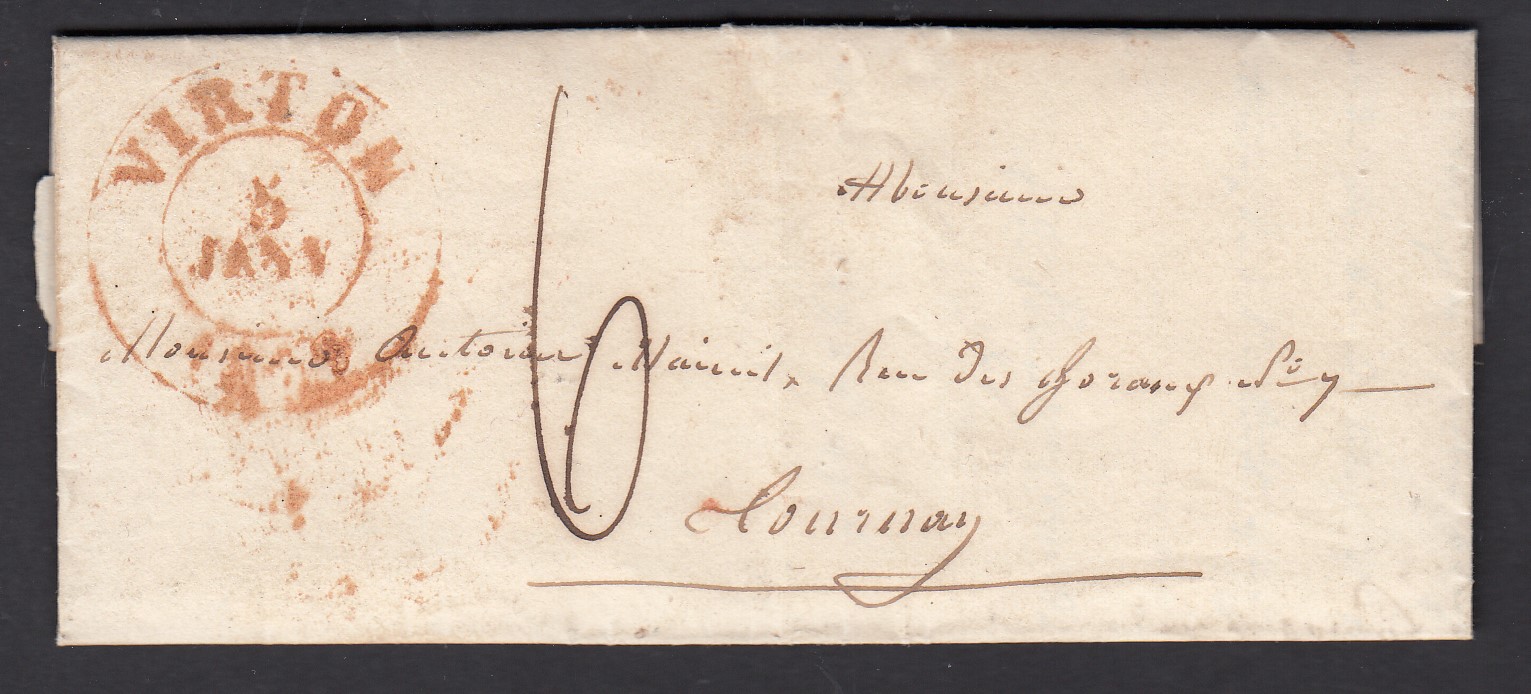 VIRTON
5
JANV
6
Monsieur
Monsieur Antoine Rue des No 7
Tournay